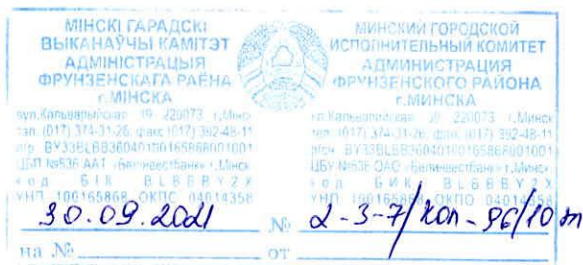 МІНСКІ ГАРАДСКІ
ВЫКАНАЎЧЫ КАМІТЭТ
АДМІНІСТРАЦЫЯ
ФРУНЗЕНСКАГА РАЁНА
г.МІНСКА
вул.Кальварыйская 39 220073 г.Мінск
тэл. (017) 374-31-26, факс (017) 392-48-11
ЦБП №536 ААТ «Белінвестбанк» г.Мінск
код БІК BLBBBY2X
УНП 100165868 ОКПС 04014358
МИНСКИЙ ГОРОДСКОЙ
ИСПОЛНИТЕЛЬНЫЙ КОМИТЕТ
АДМИНИСТРАЦИЯ
ФРУНЗЕНСКОГО РАЙОНА
г.МИНСКА
ул.Кальварийская 39 220073 г.Минск
тел. (017) 374-31-26, факс (017) 392-48-11
ЦБУ №536 ОАО «Белинвестбанк» г.Минск
код БИК BLBBBY2X
УНП 100165868 ОКПО 04014358
30.09.2021 № 2-3-7/кол-96/10 т
на № от